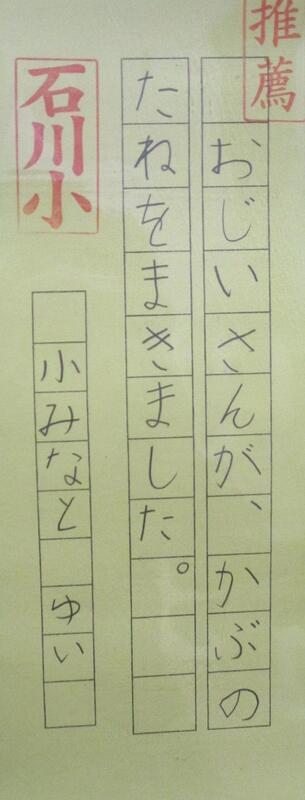 推薦
おじいさんが、かぶの
たねをまきました。
石川小
小みなと ゆい